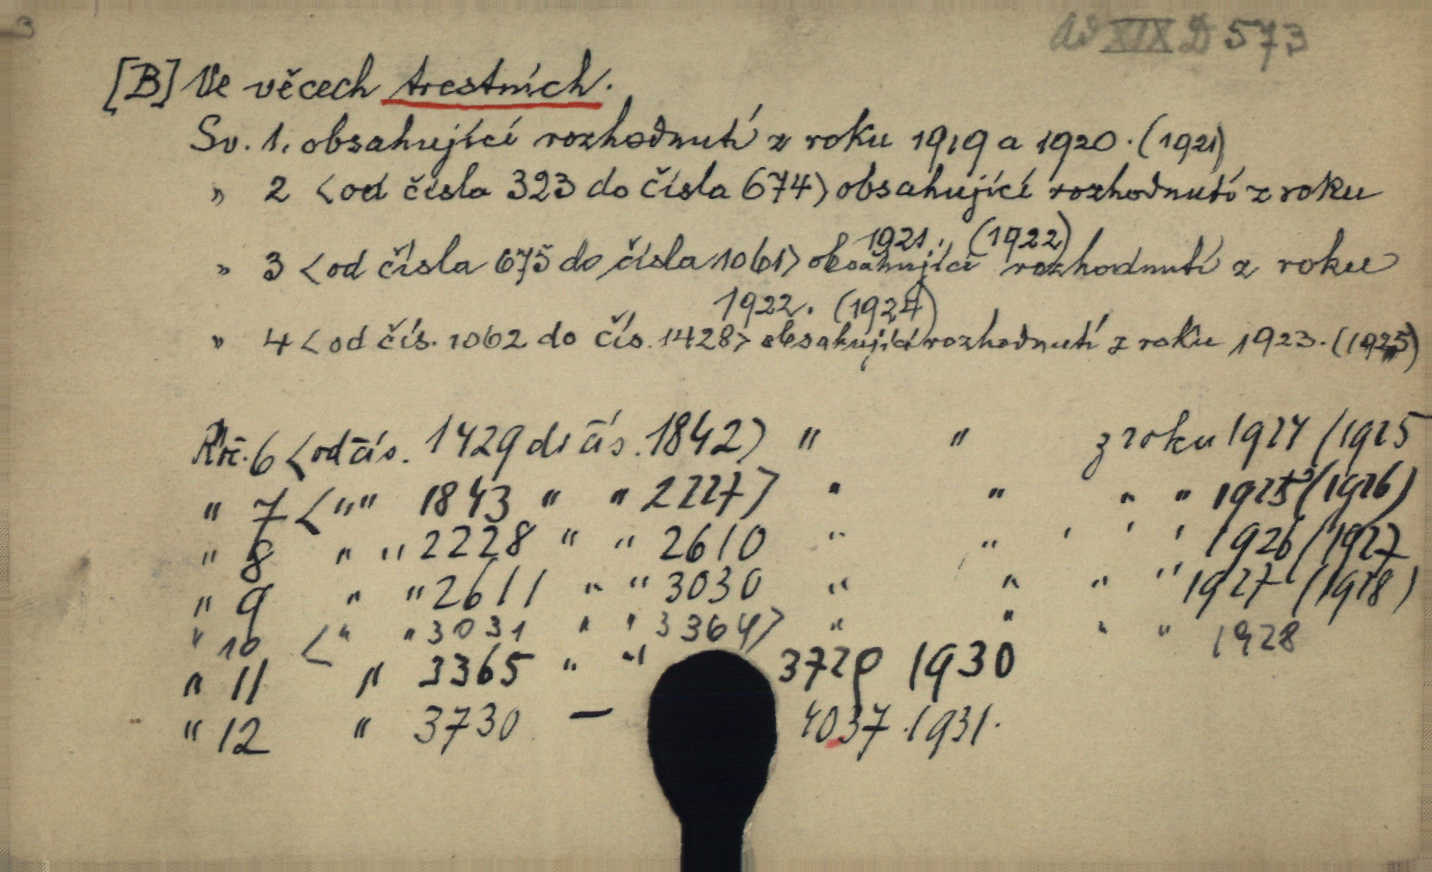 3
ad XIX D 573
[B] Ve věcech trestních.
Sv. 1. obsahující rozhodnutí z roku 1919 a 1920. (1921)
" 2 <od čísla 323 do čísla 674> obsahující rozhodnutí z roku
1921. (1922)
" 3 <od čísla 675 do čísla 1061> obsahující rozhodnutí z roku
1922. (1924)
" 4 <od čís. 1062 do čís. 1428> obsahující rozhodnutí z roku 1923. (1925)
Roč. 6 <od čís. 1429 do čís. 1842> " " z roku 1924 (1925
" 7 < " " 1843 " " 2227> " " " " 1925 (1926)
" 8 " " 2228 " " 2610 " " " " " 1926 (1927
" 9 " " 2611 " " 3030 " " " " 1927 (1928)
" 10 < " " 3031 " " 3364> " " " " 1928
" 11 " 3365 " " 3729 1930
" 12 " 3730 — 4037 . 1931.